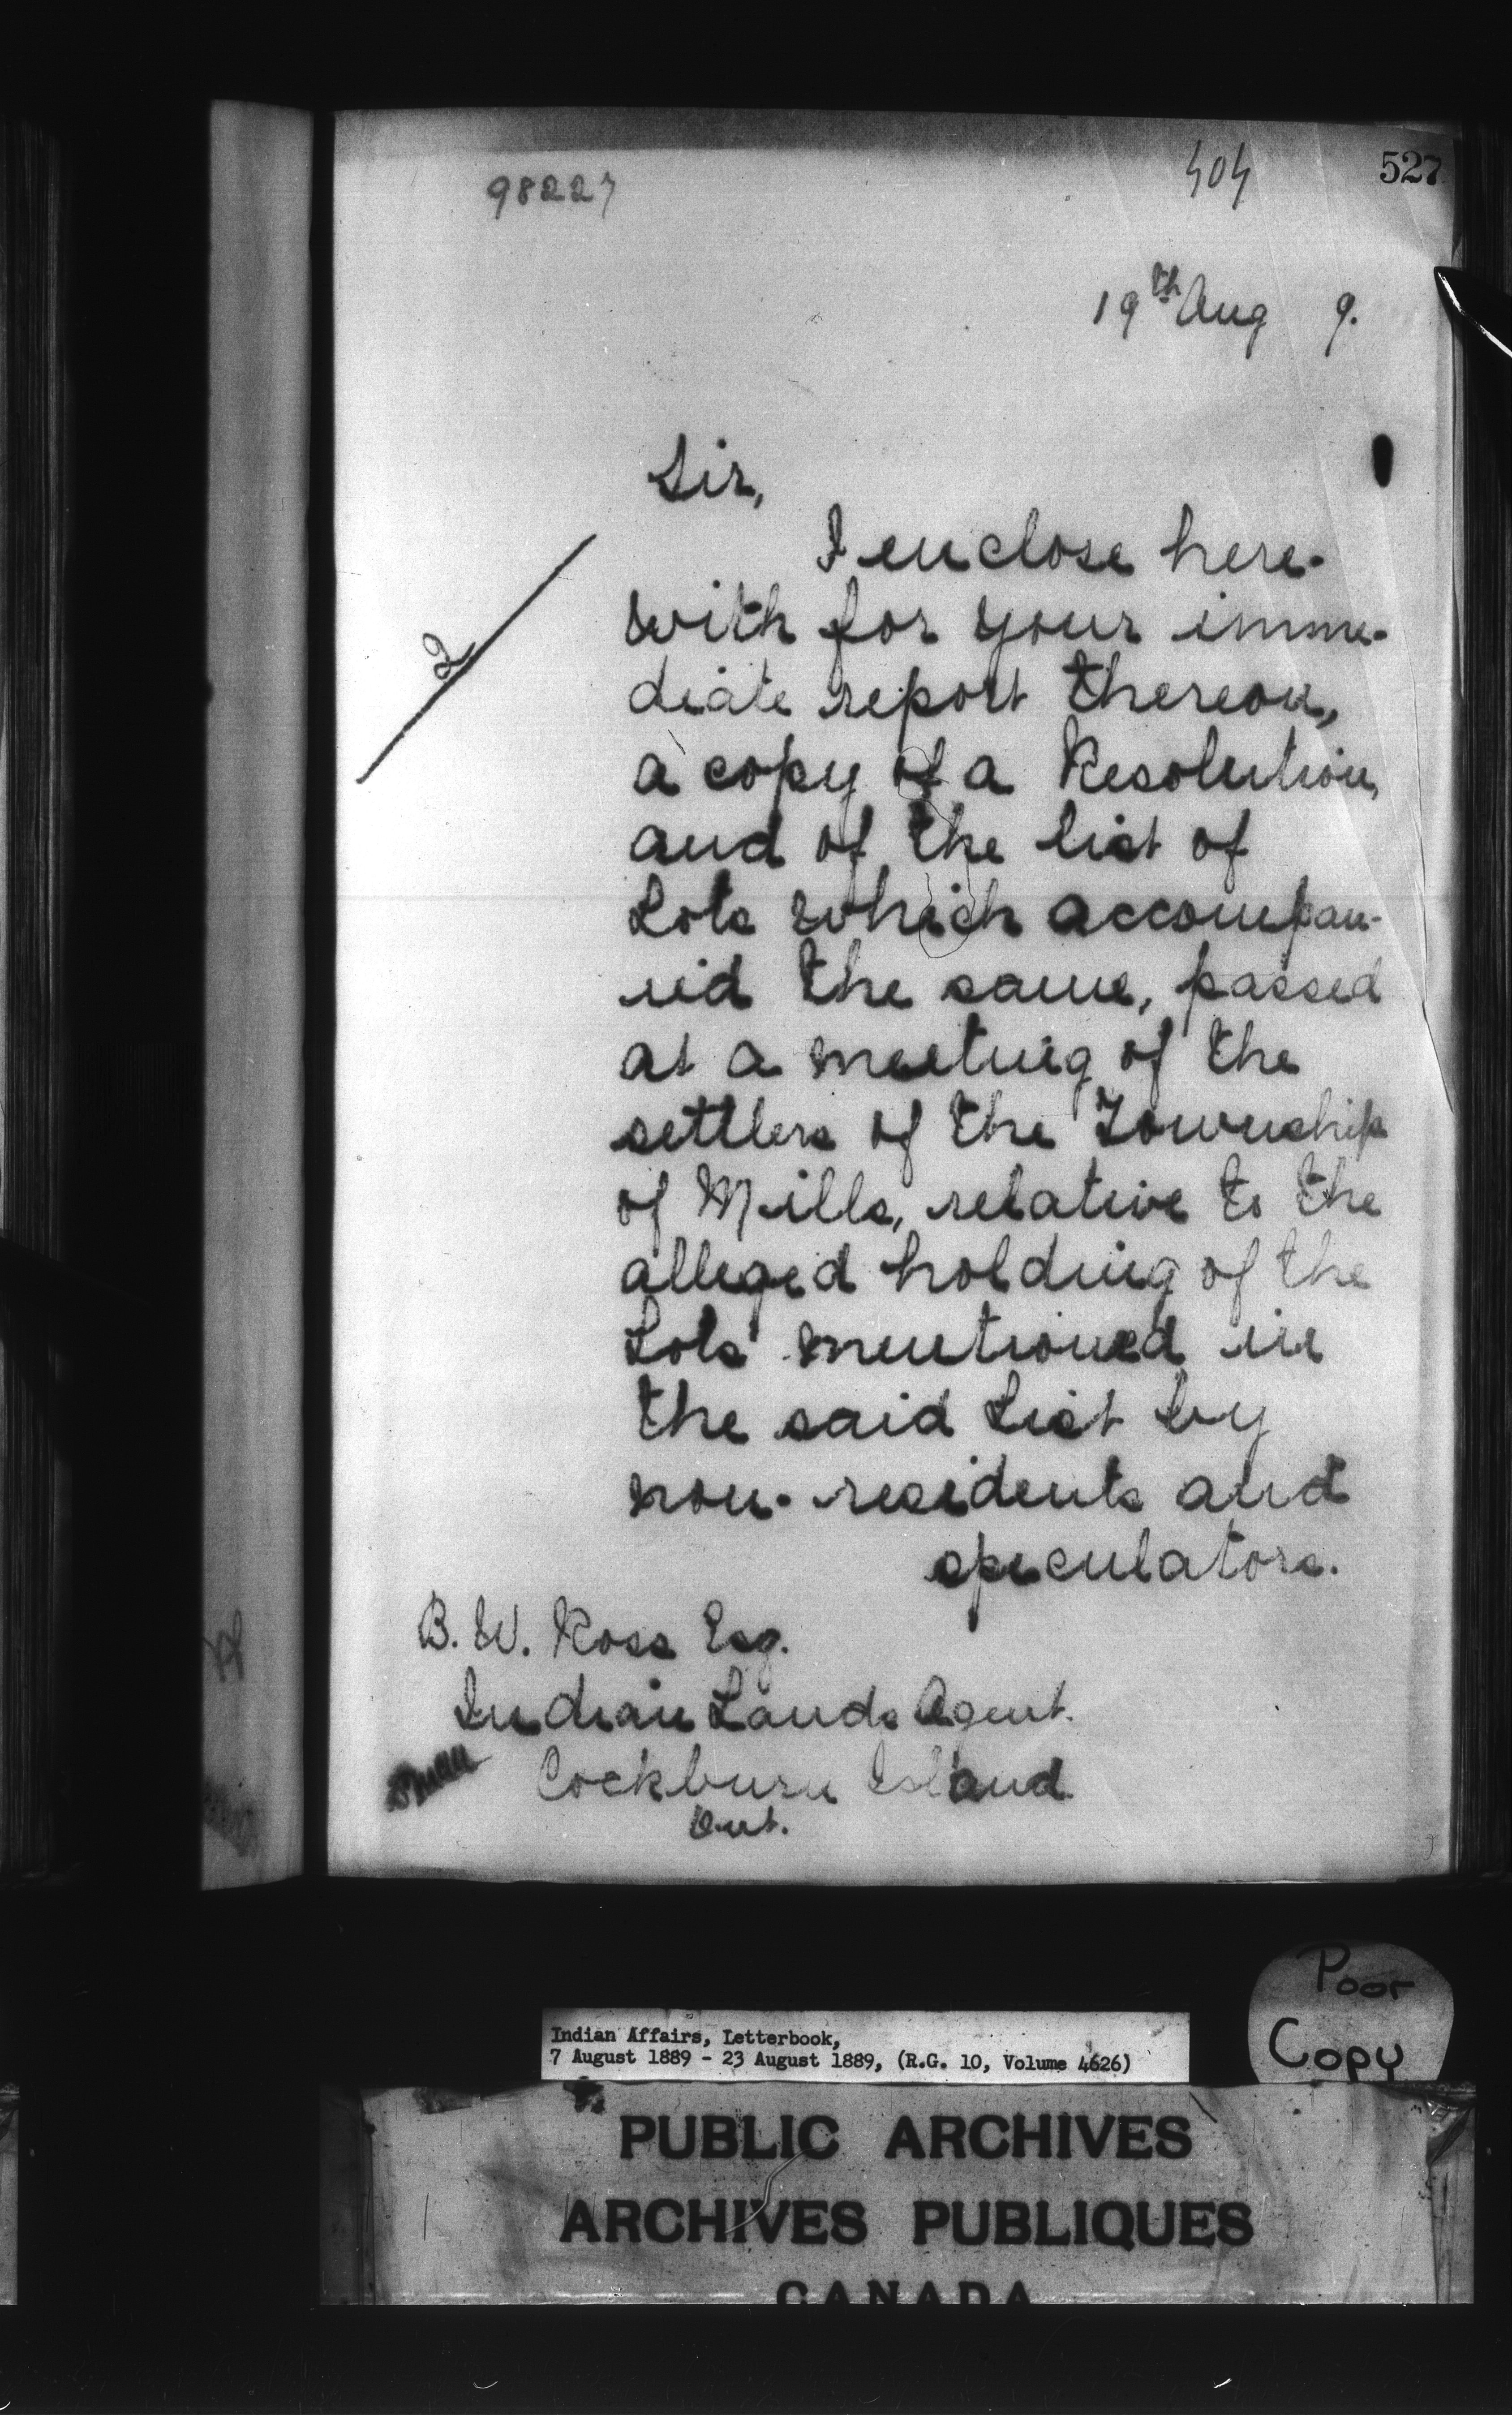 98227
527
19th Aug 9.
Sir,
I enclose here-
with for your imme-
diate report thereon,
a copy of a Resolution,
and of the list of
Lots which accompan-
ied the same, passed
at a meeting of the
settlers of the Township
of Mills, relative to the
alleged holding of the
Lots mentioned in
the said List by
non-residents and
speculators.
2
B. W. Ross Esq.
Indian Lands Agent.
Cockburn Island
Ont.
Poor
Copy
Indian Affairs, Letterbook,
7 August 1889 - 23 August 1889, (R.G. 10, Volume 4626)
PUBLIC ARCHIVES
ARCHIVES PUBLIQUES
CANADA